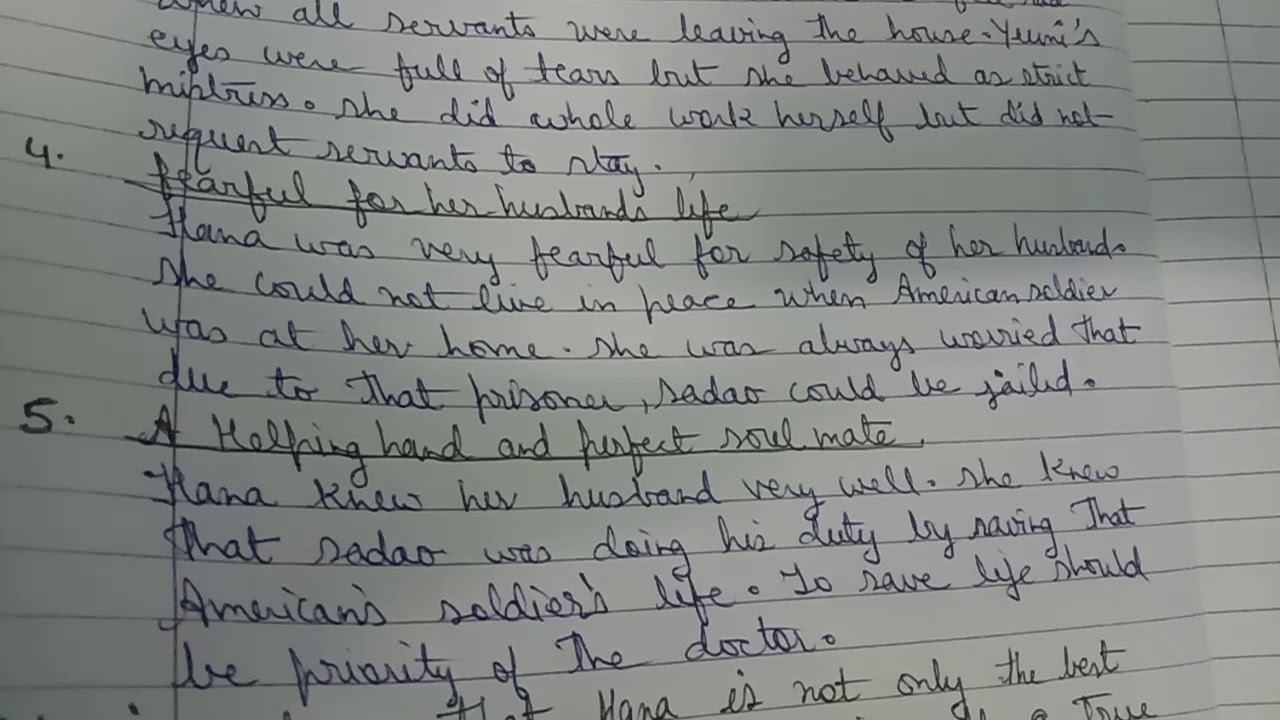 when all servants were leaving the house. Yeumi's
eyes were full of tears but she behaved as strict
mistress. She did whole work herself but did not
request servants to stay.
4. Fearful for her husbands life
Hana was very fearful for safety of her husband.
She could not live in peace when American soldier
was at her home. She was always worried that
due to that prisoner, sadao could be jailed.
5. A Helping hand and perfect soul mate.
Hana knew her husband very well. She knew
that sadao was doing his duty by saving that
American's soldier's life. To save life should
be priority of the doctor.
Hana is not only the best
a true